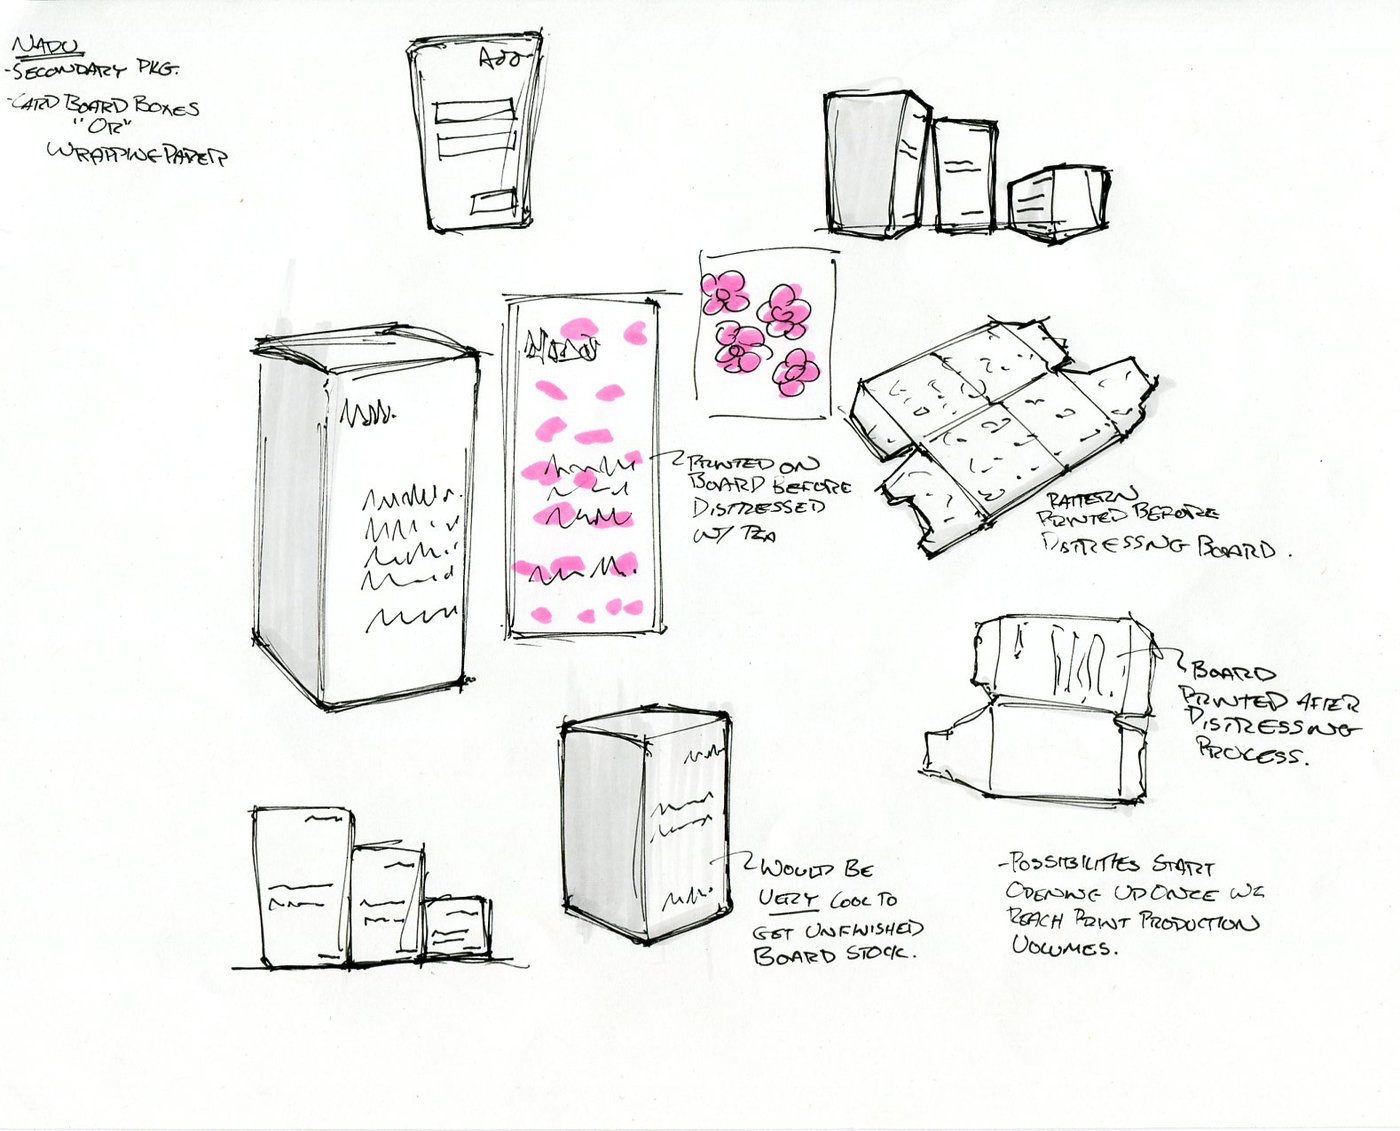 NADU
-SECONDARY PKG.
-CARD BOARD BOXES
"OR"
WRAPPING PAPER
PRINTED ON
BOARD BEFORE
DISTRESSED
W/ TEA
PATTERN
PRINTED BEFORE
DISTRESSING BOARD.
BOARD
PRINTED AFTER
DISTRESSING
PROCESS.
WOULD BE
VERY COOL TO
GET UNFINISHED
BOARD STOCK.
-POSSIBILITIES START
OPENING UP ONCE WE
REACH PRINT PRODUCTION
VOLUMES.